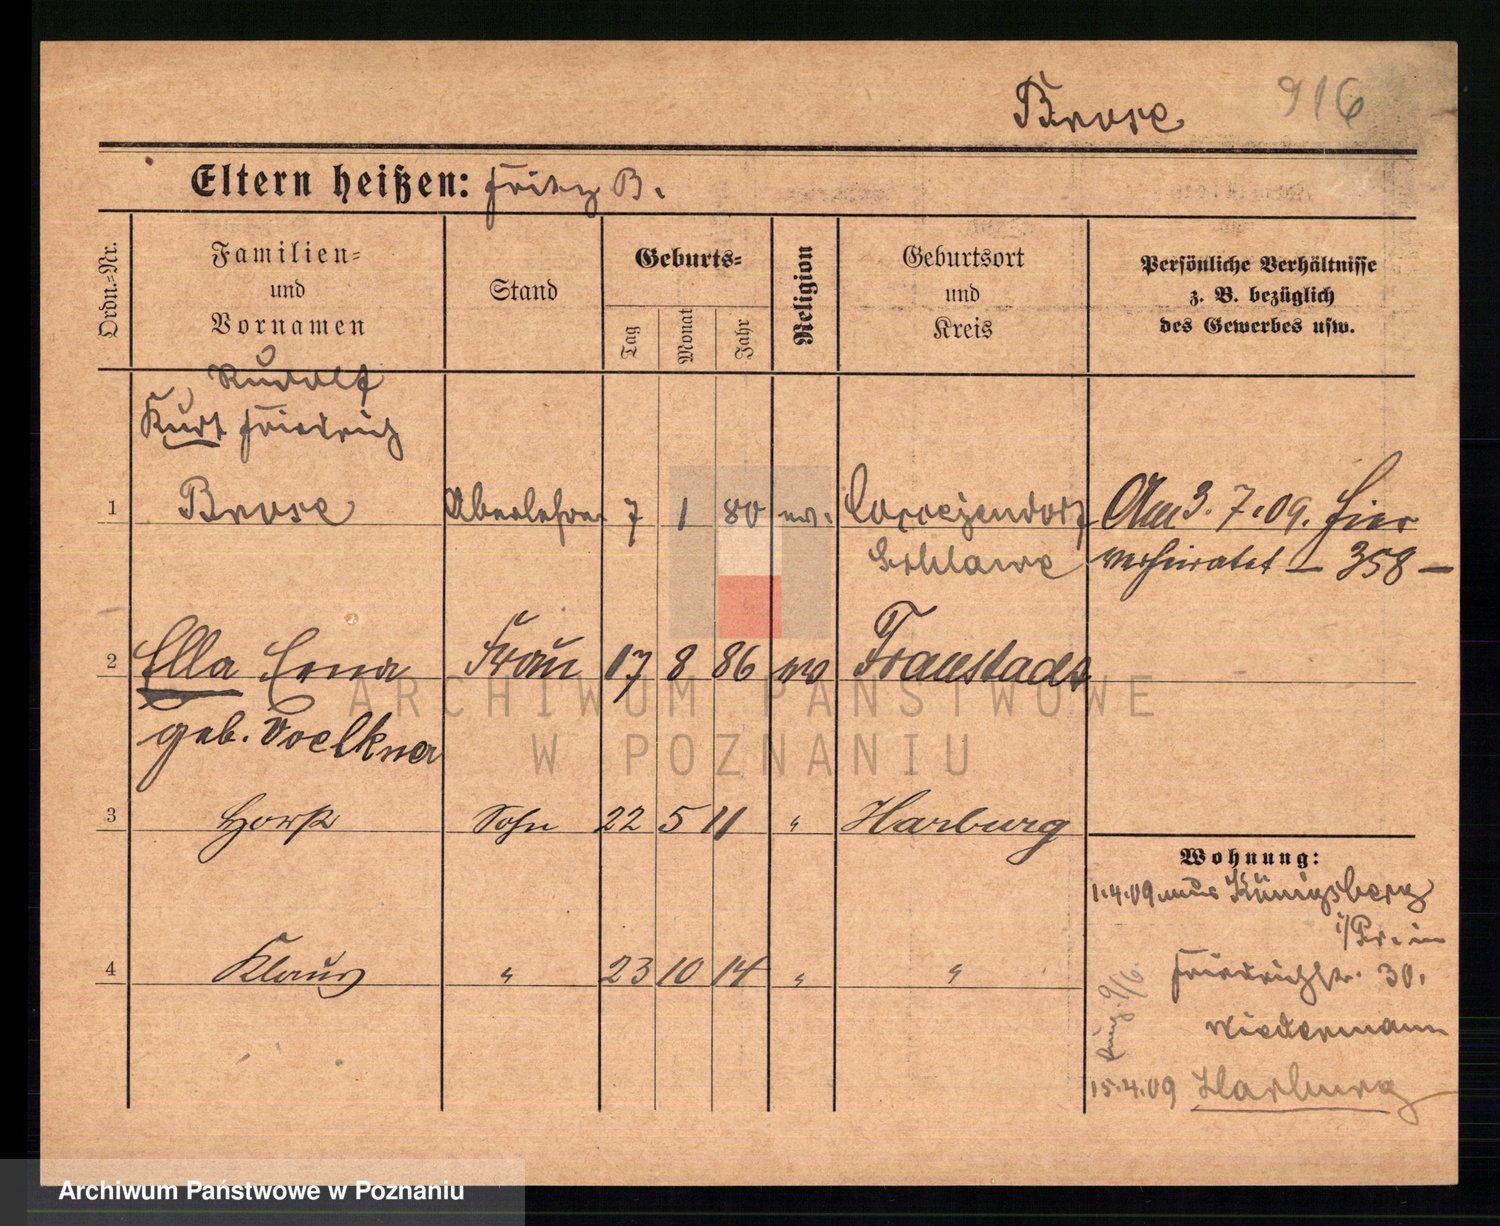 Brose 916
Eltern heißen: Fritz B.
Ordn.-Nr.
Familien-
und
Vornamen
Stand
Geburts-
Tag
Monat
Jahr
Religion
Geburtsort
und
Kreis
Persönliche Verhältnisse
z. B. bezüglich
des Gewerbes usw.
Rudolf
Kurt Friedrich
1 Brose Oberlehrer 7 1 80 ev. Am 3.7.09. hier
Schlawe verheiratet – 358 –
2 Ella Erna Frau 17 8 86 ev Fraustadt
geb. Voelkner
3 Horst Sohn 22 5 11 " Harburg
Wohnung:
1.4.09 aus Königsberg
i/Pr. in
4 Klaus " 23 10 14 " "
Friedrichstr. 30.
Niedermann
9/6.
15.4.09 Harburg
ARCHIWUM PAŃSTWOWE
W POZNANIU
Archiwum Państwowe w Poznaniu